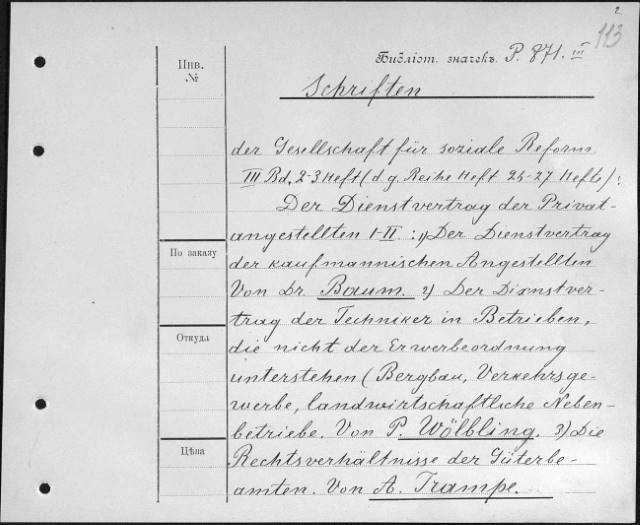 2.
113
Инв.
№
Библіот. значекъ. P. 871. III
Schriften
der Gesellschaft für soziale Reform
III Bd. 2-3 Heft (d. g. Reihe Heft 25-27 Hefte):
Der Dienstvertrag der Privat-
angestellten I-II: 1) Der Dienstvertrag
По заказу
der kaufmannischen Angestellten
Von Dr. Baum. 2) Der Dienstver-
trag der Techniker in Betrieben,
Откуда
die nicht der Erwerbeordnung
unterstehen (Bergbau, Verkehrsge-
werbe, landwirtschaftliche Neben-
betriebe. Von P. Wölbling. 3) Die
Цѣна
Rechtsverhältnisse der Güterbe-
amten. Von A. Trampe.